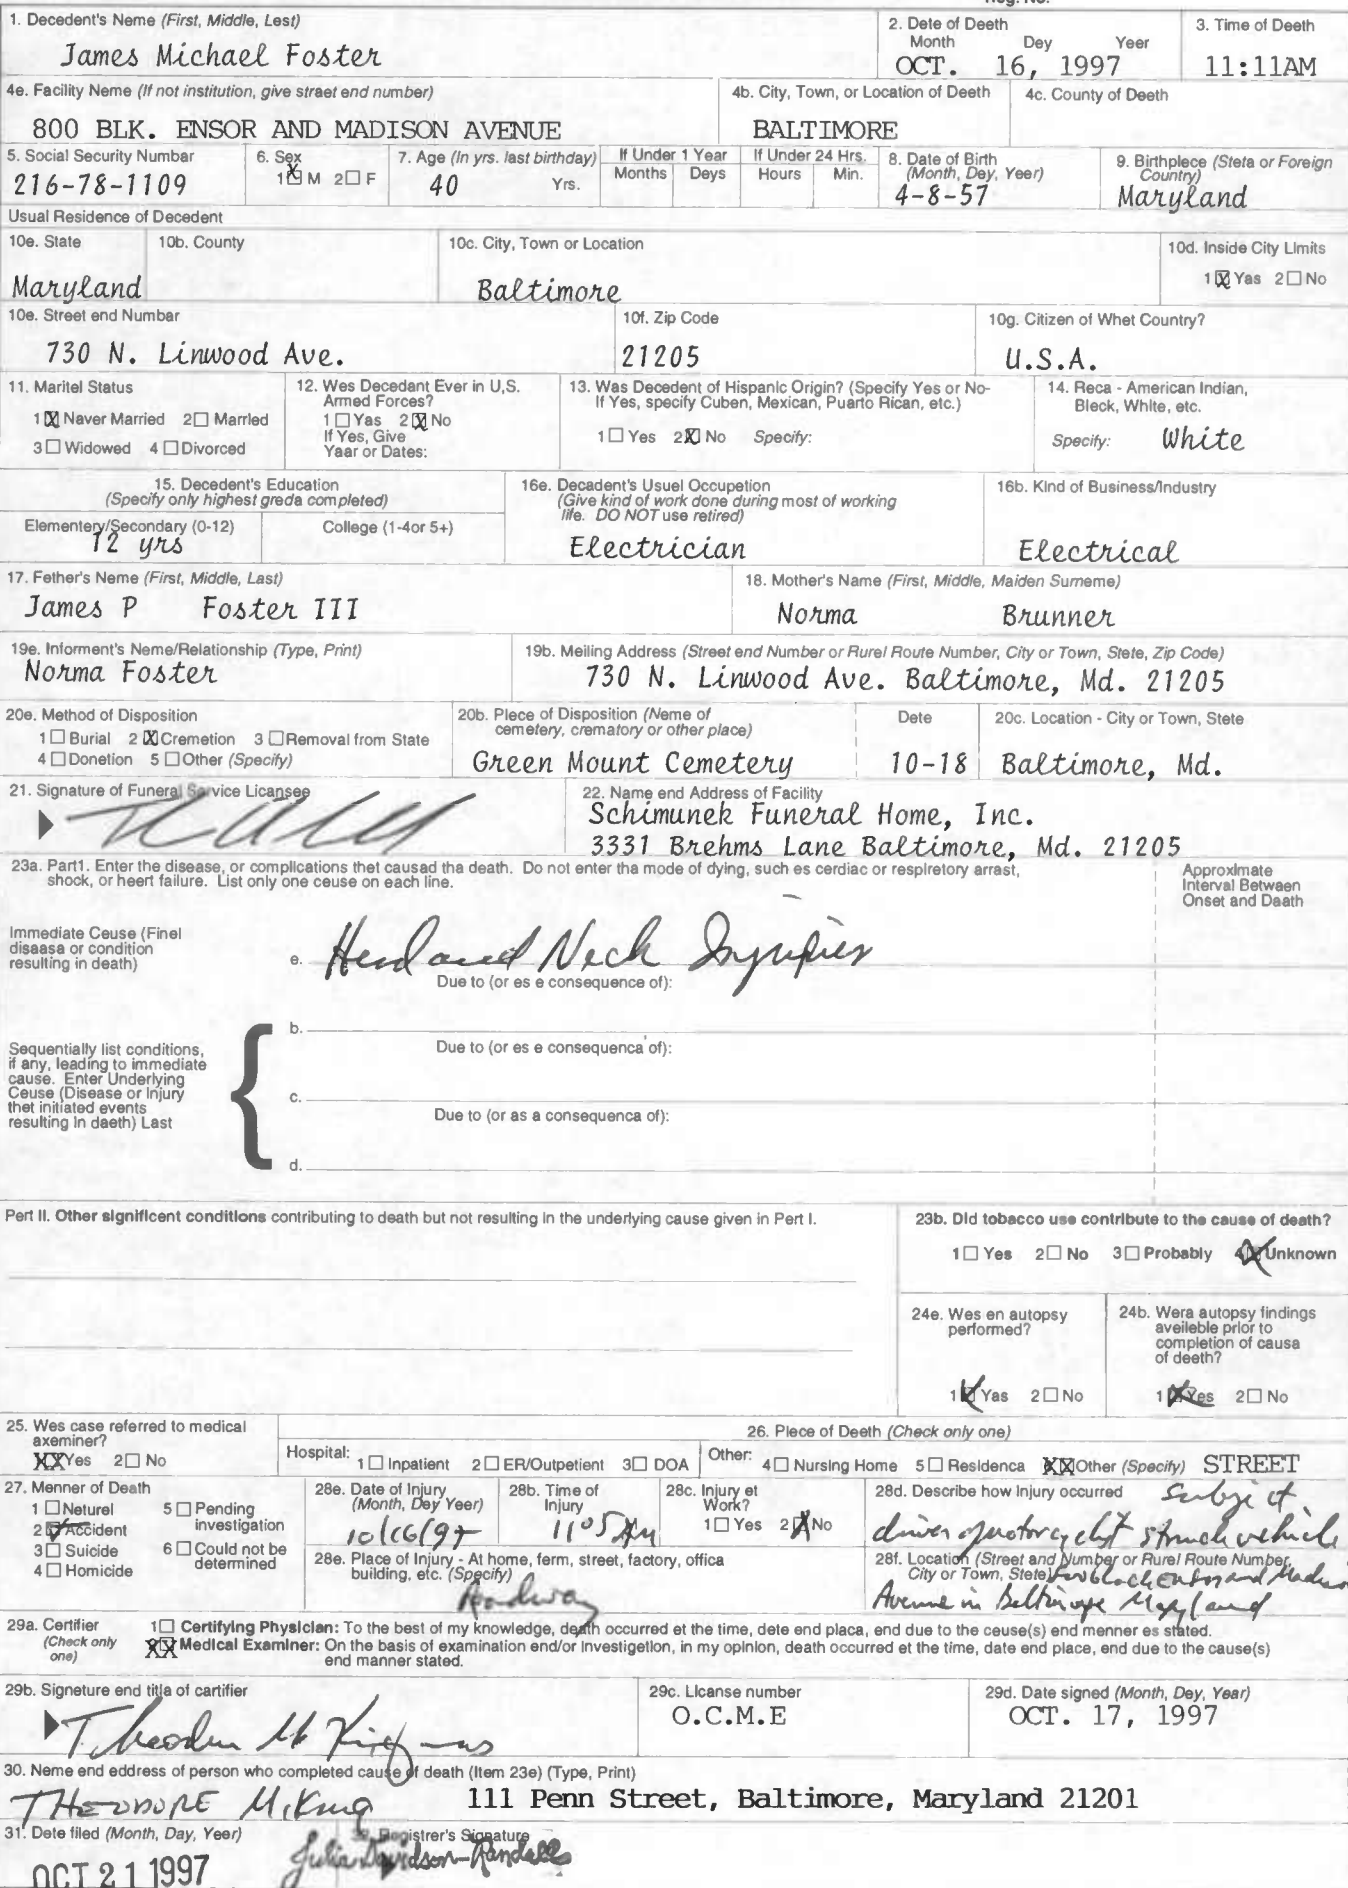 1. Decedent's Name (First, Middle, Lest)
James Michael Foster
2. Dete of Deeth
Month Dey Yeer
OCT. 16, 1997
3. Time of Deeth
11:11AM
4e. Facility Name (If not institution, give straet end number)
800 BLK. ENSOR AND MADISON AVENUE
4b. City, Town, or Location of Deeth
BALTIMORE
4c. County of Deeth
5. Social Security Numbar
216-78-1109
6. Sex
1☒ M 2☐ F
7. Age (In yrs. last birthday)
40 Yrs.
If Under 1 Year
Months Deys
If Under 24 Hrs.
Hours Min.
8. Date of Birth
(Month, Dey, Yeer)
4-8-57
9. Birthplece (Steta or Foreign
Country)
Maryland
Usual Residence of Decedent
10e. State
Maryland
10b. County
10c. City, Town or Location
Baltimore
10d. Inside City Limits
1☒ Yas 2☐ No
10e. Street end Number
730 N. Linwood Ave.
10f. Zip Code
21205
10g. Citizen of Whet Country?
U.S.A.
11. Maritel Status
1☒ Naver Married 2☐ Married
3☐ Widowed 4☐ Divorced
12. Wes Decedant Ever in U,S.
Armed Forces?
1☐ Yas 2☒ No
If Yes, Give
Yaar or Dates:
13. Was Decedent of Hispanic Origin? (Specify Yes or No-
If Yes, specify Cuben, Mexican, Puarto Rican, etc.)
1☐ Yes 2☒ No Specify:
14. Reca - American Indian,
Bleck, White, etc.
Specify: White
15. Decedent's Education
(Specify only highest greda completed)
Elementery/Secondary (0-12)
12 yrs
College (1-4or 5+)
16e. Decadent's Usuel Occupetion
(Give kind of work done during most of working
life. DO NOT use retired)
Electrician
16b. Kind of Business/Industry
Electrical
17. Fether's Name (First, Middle, Last)
James P Foster III
18. Mother's Name (First, Middle, Maiden Surneme)
Norma Brunner
19e. Informent's Neme/Reletionship (Type, Print)
Norma Foster
19b. Meiling Address (Street end Number or Rurel Route Number, City or Town, Stete, Zip Code)
730 N. Linwood Ave. Baltimore, Md. 21205
20e. Method of Disposition
1☐ Burial 2☒ Cremetion 3☐ Removal from State
4☐ Donetion 5☐ Other (Specify)
20b. Plece of Disposition (Neme of
cemetery, crematory or other place)
Green Mount Cemetery
Dete
10-18
20c. Location - City or Town, Stete
Baltimore, Md.
21. Signature of Funeral Service Licansee
22. Name end Address of Facility
Schimunek Funeral Home, Inc.
3331 Brehms Lane Baltimore, Md. 21205
23a. Part1. Enter the disease, or complications thet causad tha death. Do not enter tha mode of dying, such es cerdiac or respiretory arrast,
shock, or heert failure. List only one ceuse on each line.
Approximate
Interval Between
Onset and Daath
Immediate Ceuse (Finel
disaasa or condition
resulting in death)
e. Head and Neck Injuries
Due to (or es e consequence of):
Sequentially list conditions,
if any, leading to immediate
cause. Enter Underlying
Ceuse (Disease or Injury
thet initiated events
resulting in daeth) Last
b.
Due to (or es e consequenca of):
c.
Due to (or as a consequenca of):
d.
Part II. Other significent conditions contributing to death but not resulting in the underlying cause given in Part I.
23b. Did tobacco use contribute to the cause of death?
1☐ Yes 2☐ No 3☐ Probably 4☒ Unknown
24e. Wes en autopsy
performed?
1☒ Yas 2☐ No
24b. Wera autopsy findings
aveileble prior to
completion of causa
of deeth?
1☒ Yes 2☐ No
25. Wes case referred to medical
axeminer?
XXYes 2☐ No
26. Plece of Deeth (Check only one)
Hospital: 1☐ Inpatient 2☐ ER/Outpetient 3☐ DOA
Other: 4☐ Nursing Home 5☐ Residenca XXOther (Specify) STREET
27. Menner of Death
1☐ Neturel
2☒ Accident
3☐ Suicide
4☐ Homicide
5☐ Pending
investigation
6☐ Could not be
determined
28e. Date of Injury
(Month, Dey Year)
10/16/97
28b. Time of
Injury
1105 AM
28c. Injury et
Work?
1☐ Yes 2☒ No
28d. Describe how Injury occurred
subject
driver of motorcyclist struck vehicle
28e. Place of Injury - At home, ferm, street, factory, offica
building, etc. (Specify)
Roadway
28f. Location (Street and Number or Rurel Route Number,
City or Town, Stete)
block Ensor and Madison
Avenue in Baltimore Maryland
29a. Certifier
(Check only
one)
1☐ Certifying Physician: To the best of my knowledge, death occurred et the time, dete end placa, end due to the ceuse(s) end menner es stated.
XX Medical Examiner: On the basis of examination end/or investigetion, in my opinion, death occurred et the time, date end place, end due to the cause(s)
end manner stated.
29b. Signeture end titla of cartifier
29c. Licanse number
O.C.M.E
29d. Date signed (Month, Dey, Year)
OCT. 17, 1997
30. Neme end eddress of person who completed cause of death (Item 23e) (Type, Print)
THEODORE M. King 111 Penn Street, Baltimore, Maryland 21201
31. Dete filed (Month, Day, Year)
OCT 21 1997
Registrer's Signature
Julia Davidson-Randall